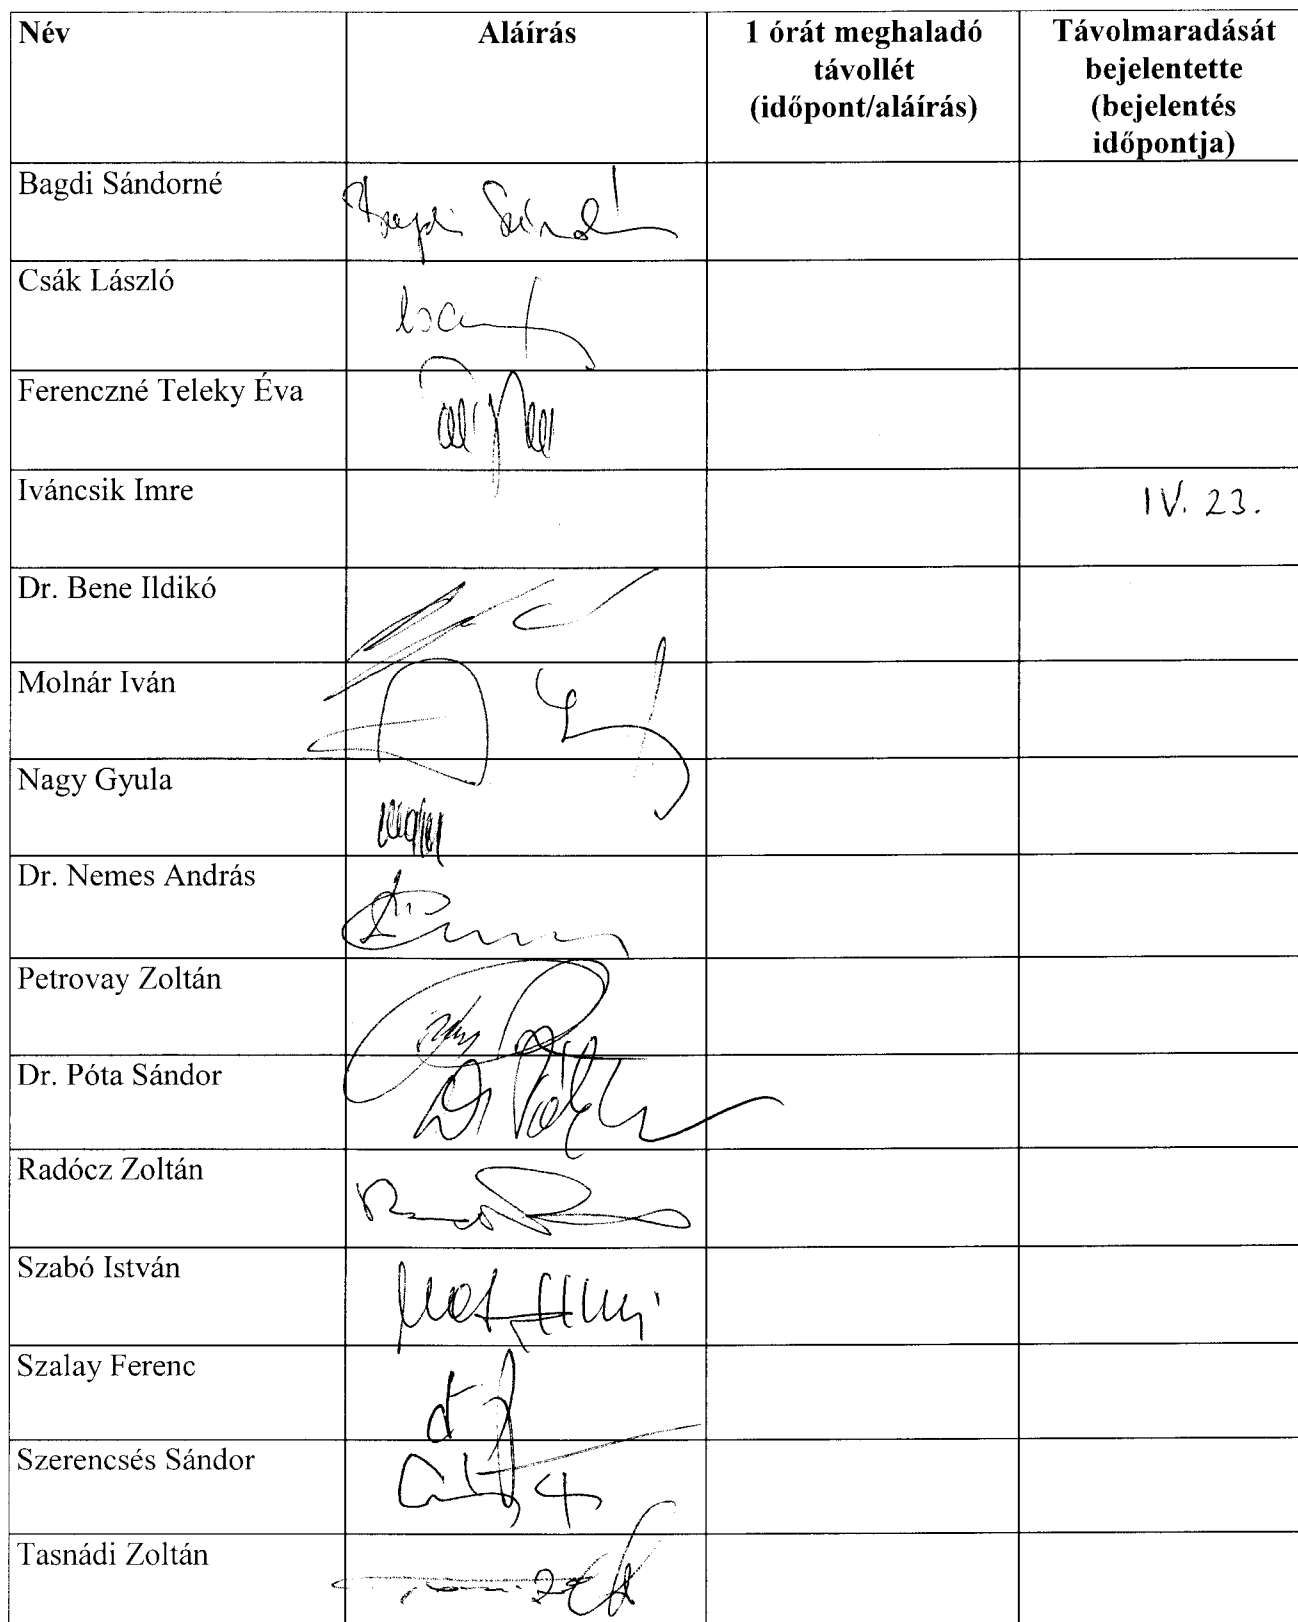 Név
Aláírás
1 órát meghaladó
távollét
(időpont/aláírás)
Távolmaradását
bejelentette
(bejelentés
időpontja)
Bagdi Sándorné
Csák László
Ferenczné Teleky Éva
Iváncsik Imre
IV. 23.
Dr. Bene Ildikó
Molnár Iván
Nagy Gyula
Dr. Nemes András
Petrovay Zoltán
Dr. Póta Sándor
Radócz Zoltán
Szabó István
Szalay Ferenc
Szerencsés Sándor
Tasnádi Zoltán